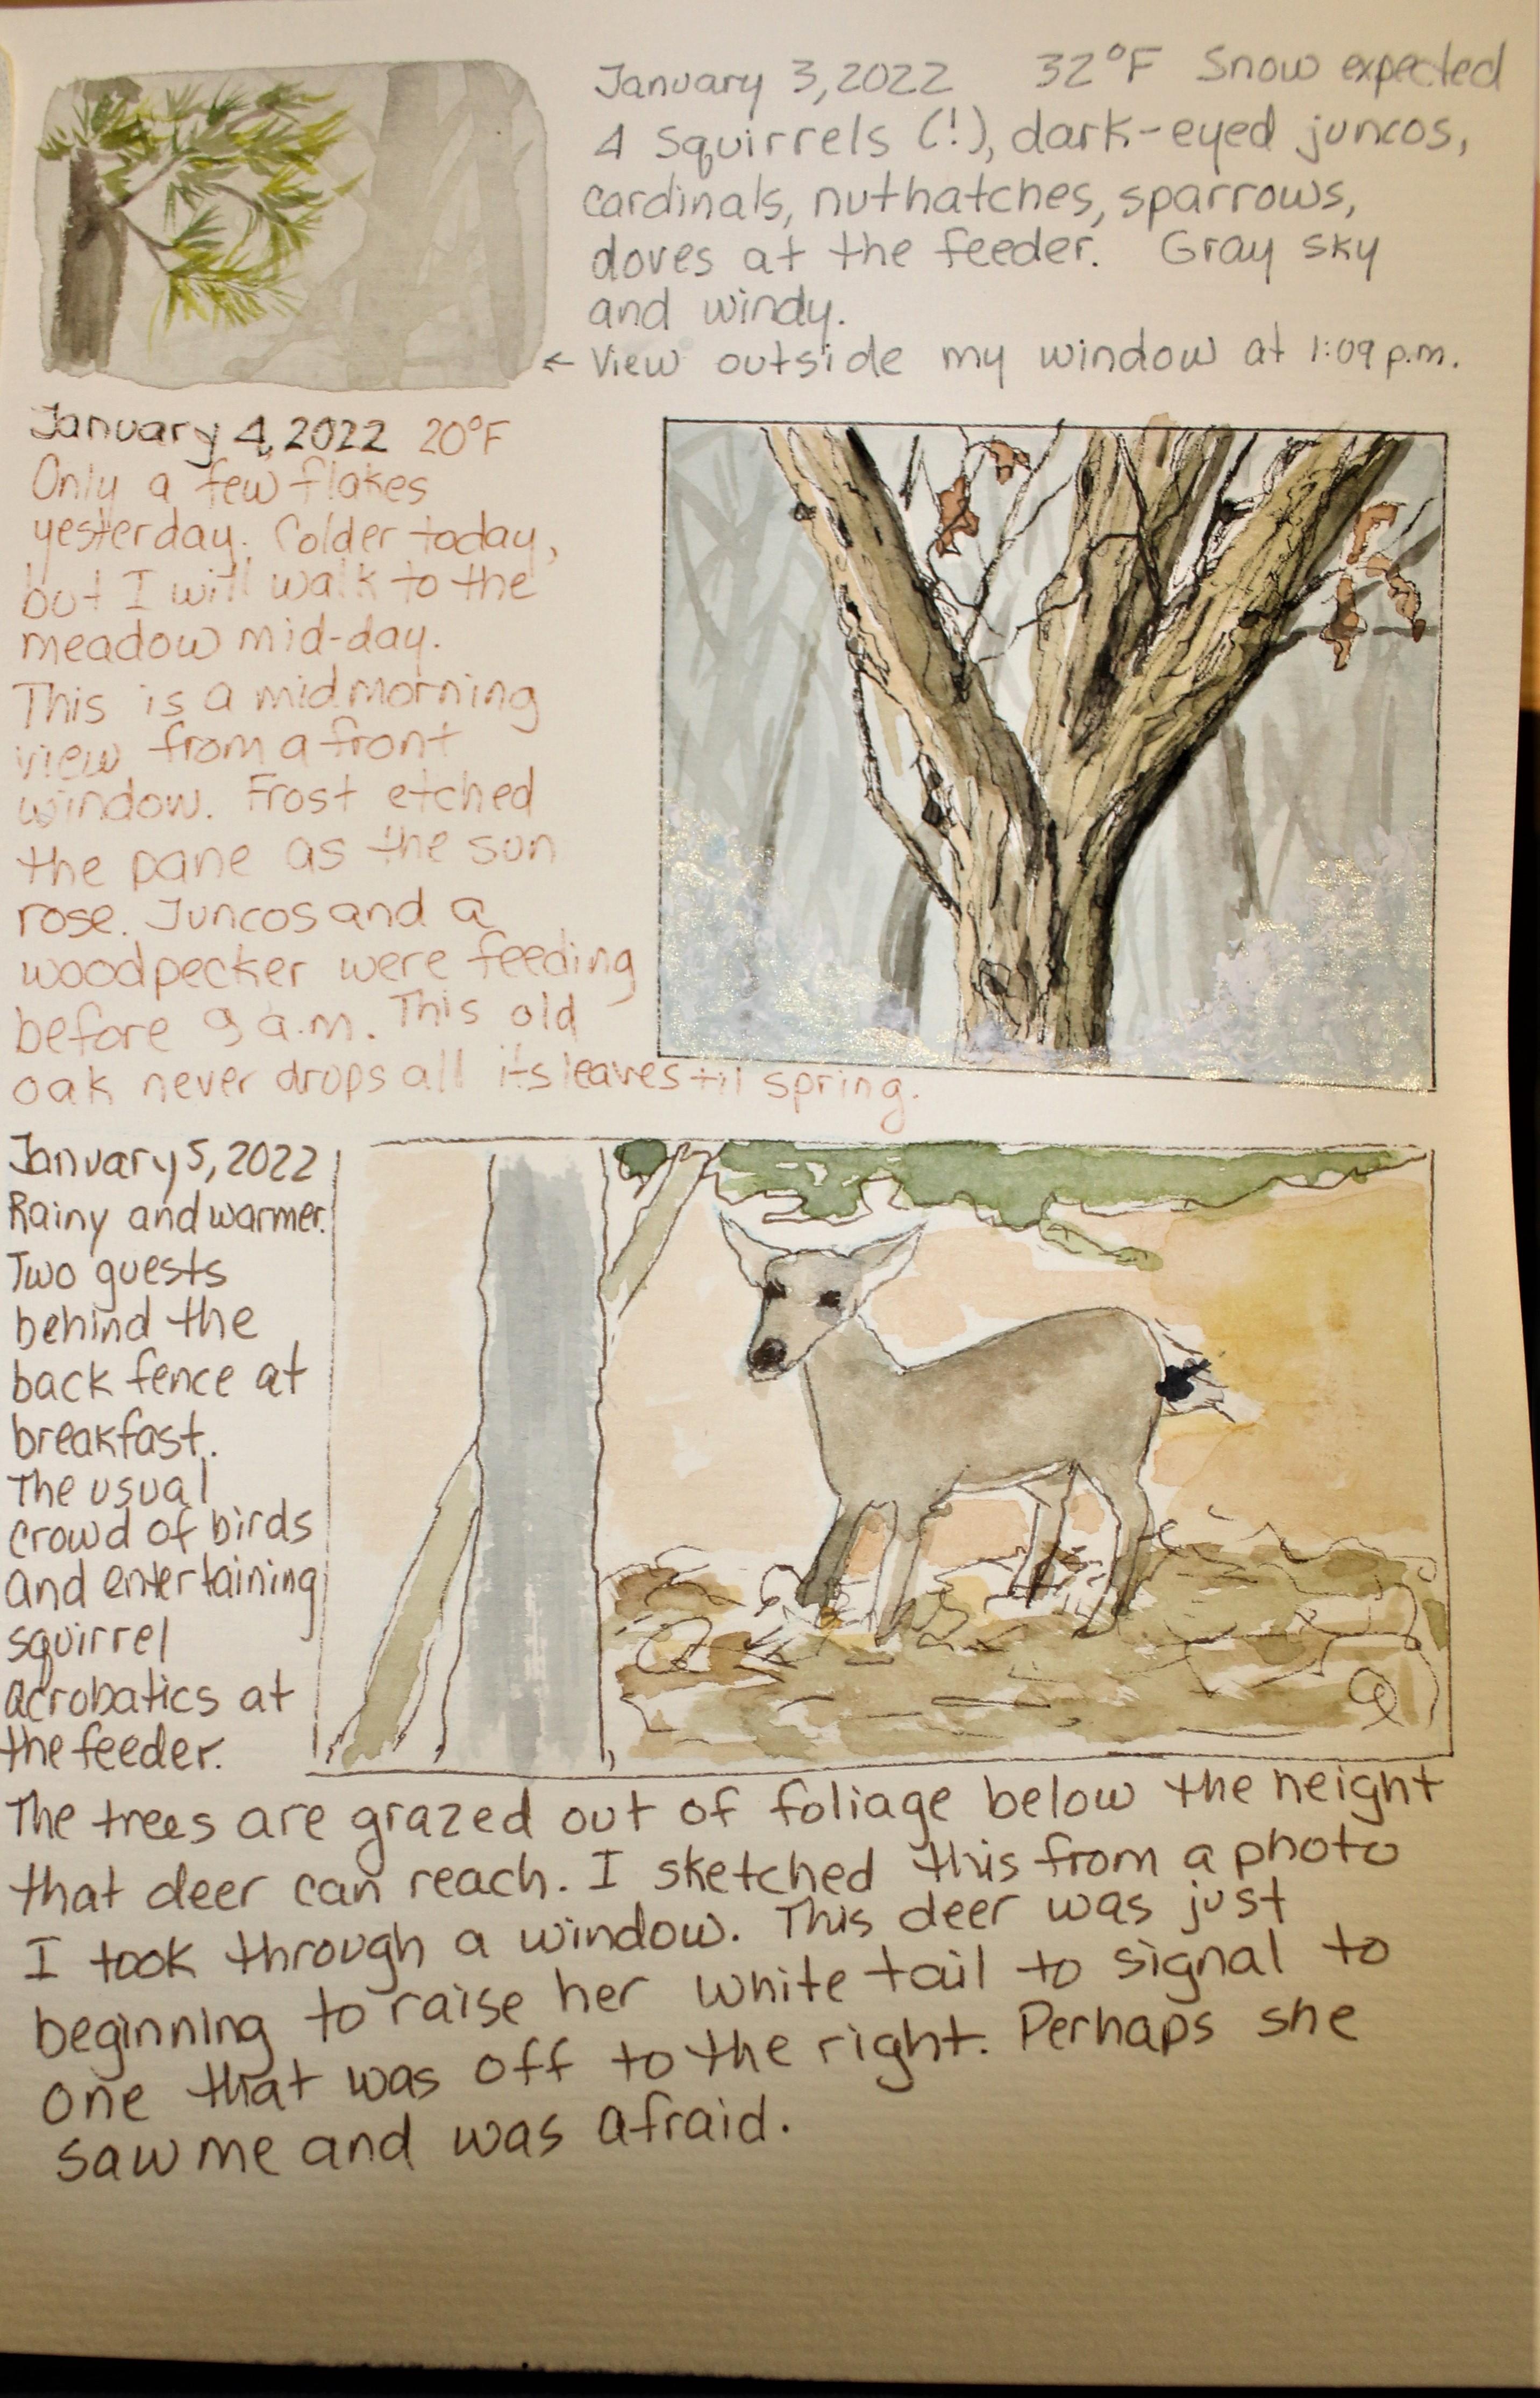 January 3, 2022 32°F Snow expected
4 Squirrels (!), dark-eyed juncos,
cardinals, nuthatches, sparrows,
doves at the feeder. Gray sky
and windy.
← View outside my window at 1:09 p.m.
January 4, 2022 20°F
Only a few flakes
yesterday. Colder today,
but I will walk to the
meadow mid-day.
This is a midmorning
view from a front
window. Frost etched
the pane as the sun
rose. Juncos and a
woodpecker were feeding
before 9 a.m. This old
oak never drops all its leaves til spring.
January 5, 2022
Rainy and warmer.
Two guests
behind the
back fence at
breakfast.
The usual
crowd of birds
and entertaining
squirrel
acrobatics at
the feeder.
The trees are grazed out of foliage below the height
that deer can reach. I sketched this from a photo
I took through a window. This deer was just
beginning to raise her white tail to signal to
one that was off to the right. Perhaps she
saw me and was afraid.